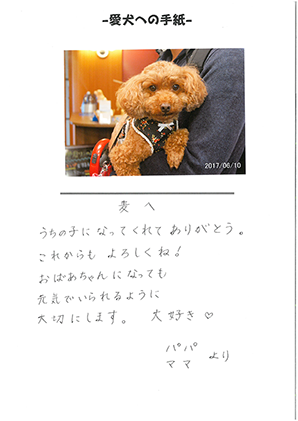 -愛犬への手紙-
2017/06/10
麦へ
うちの子になってくれてありがとう。
これからもよろしくね!
おばあちゃんになっても
元気でいられるように
大切にします。 大好き♡
パパ
ママ より